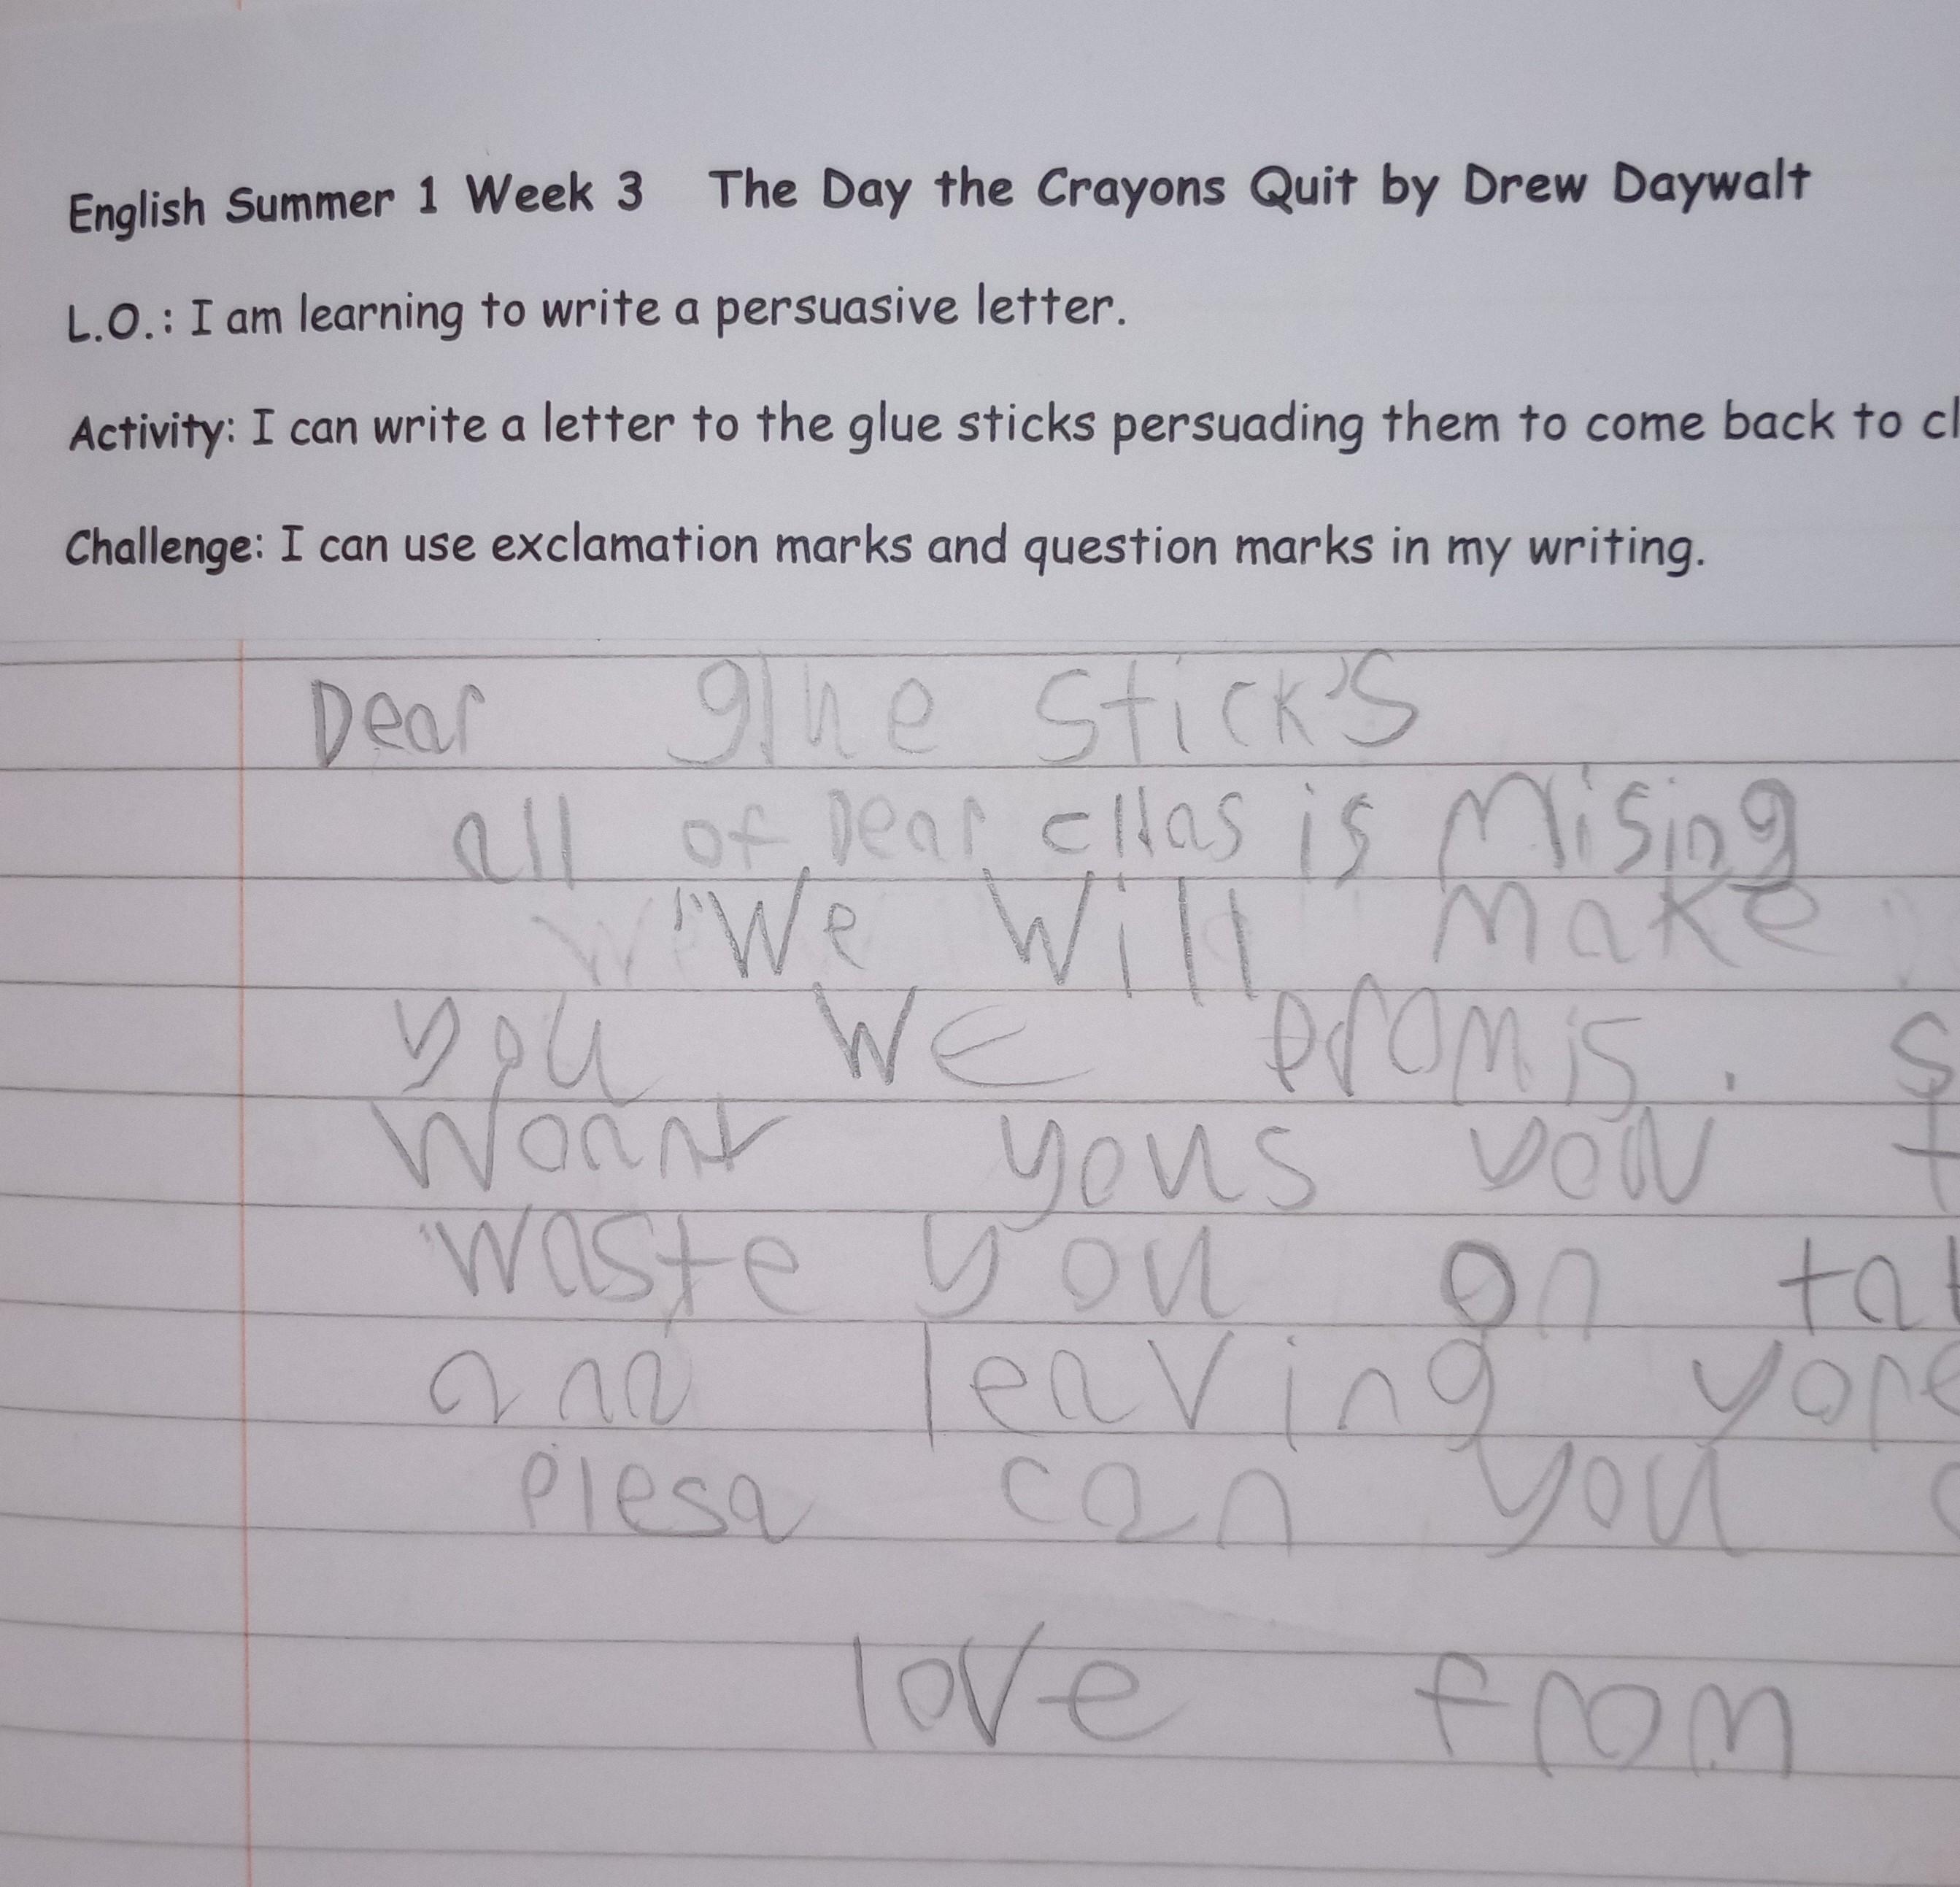 English Summer 1 Week 3 The Day the Crayons Quit by Drew Daywalt
L.O.: I am learning to write a persuasive letter.
Activity: I can write a letter to the glue sticks persuading them to come back to cl
Challenge: I can use exclamation marks and question marks in my writing.
Dear glue stick's
all of Dear cllas is Mising
We Will make
you We promis. s
Woant yous you t
waste you on tal
and leaving yore
plesa can you
love from